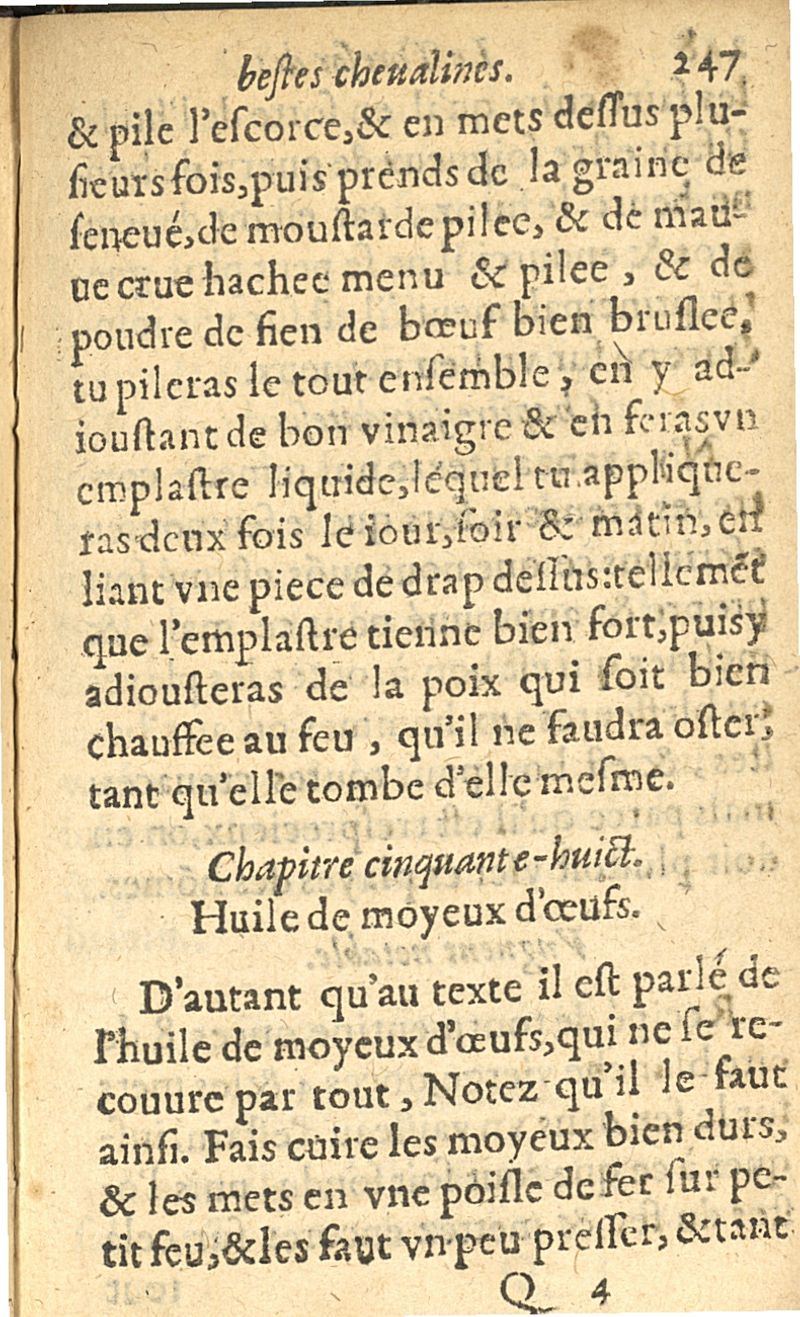 bestes cheualines. 247
& pile l'escorce, & en mets dessus plu-
sieurs fois, puis prends de la graine de
seneué, de moustarde pilee, & de mau-
ue crue hachee menu & pilee, & de
poudre de fien de bœuf bien bruslee,
tu pileras le tout ensemble, en y ad-
ioustant de bon vinaigre & en feras vn
emplastre liquide, lequel tu applique-
ras deux fois le iour, soir & matin, en
liant vne piece de drap dessus: tellemẽt
que l'emplastre tienne bien fort, puis y
adiousteras de la poix qui soit bien
chauffee au feu, qu'il ne faudra oster,
tant qu'elle tombe d'elle mesme.
Chapitre cinquante-huict.
Huile de moyeux d'œufs.
D'autant qu'au texte il est parlé de
l'huile de moyeux d'œufs, qui ne se re-
couure par tout, Notez qu'il le faut
ainsi. Fais cuire les moyeux bien durs,
& les mets en vne poisle de fer sur pe-
tit feu, & les faut vn peu presser, & tant
Q 4